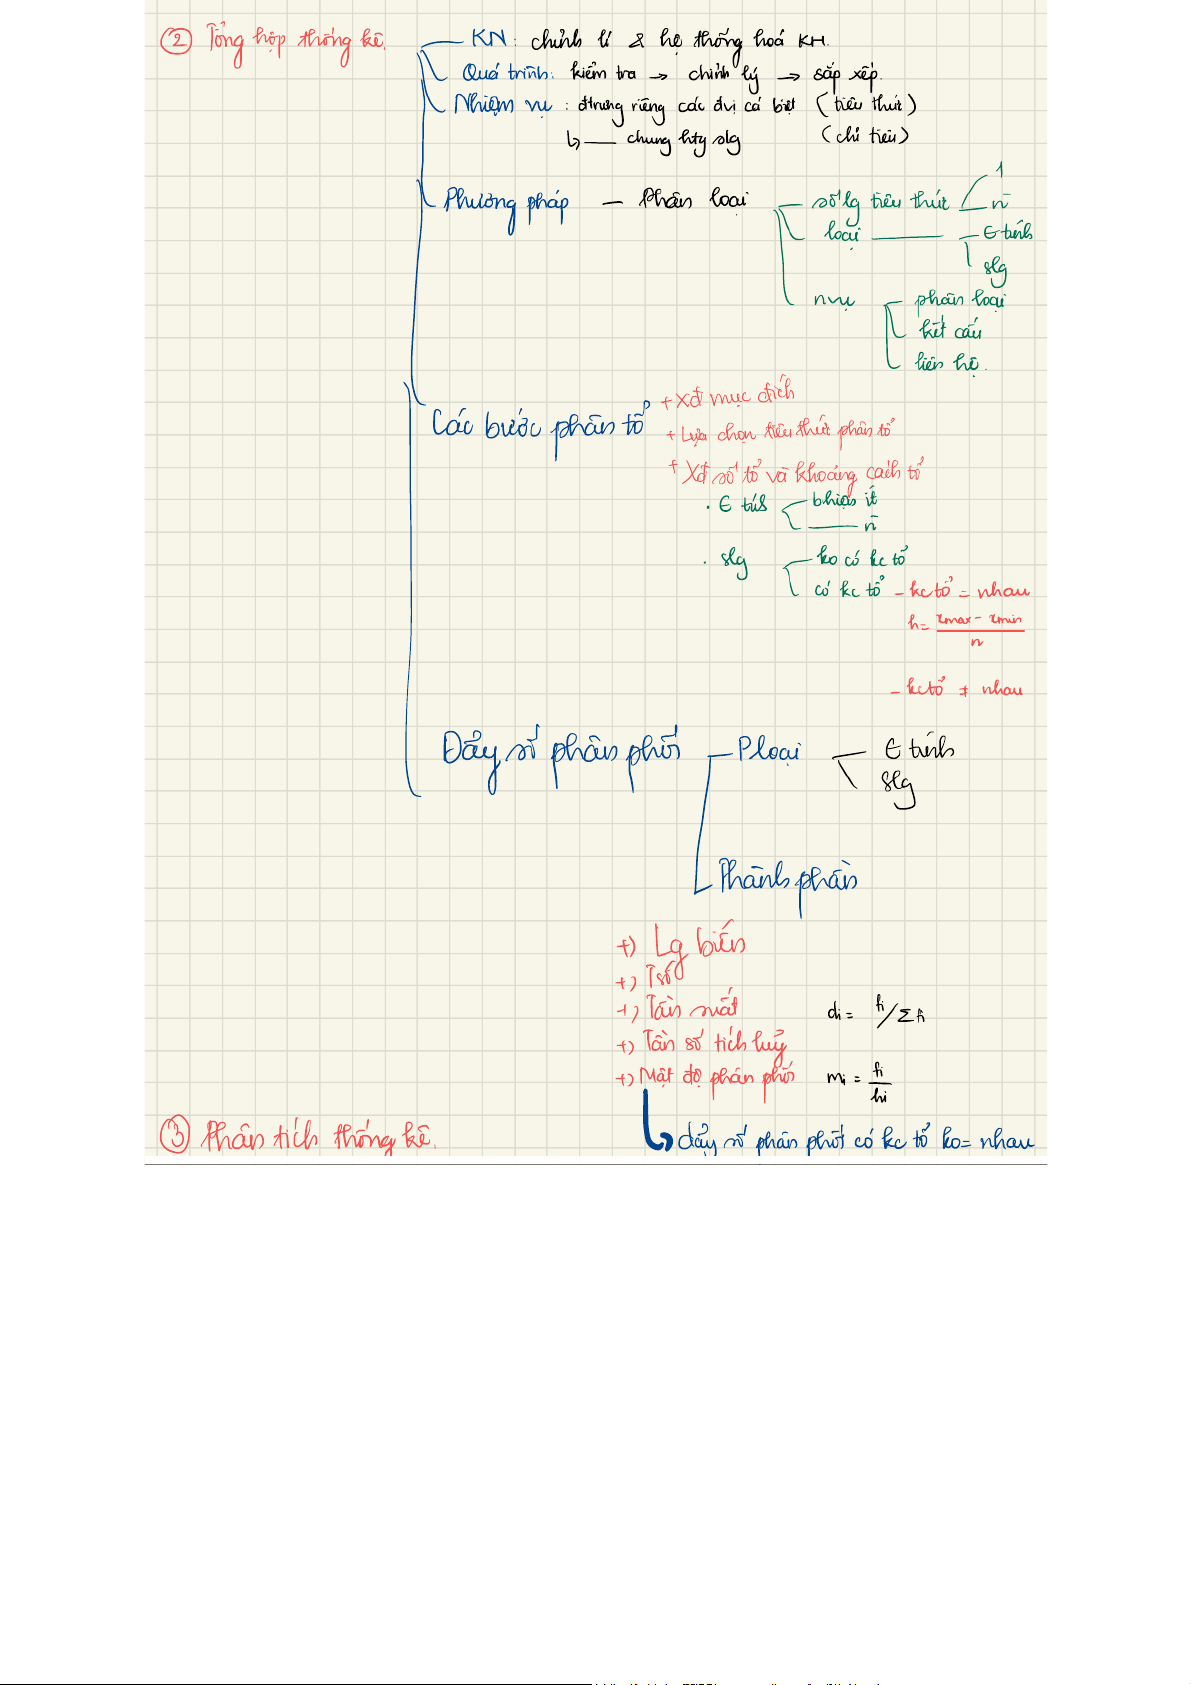 ② Tổng hợp thống kê.
KN: chỉnh lí & hệ thống hoá KH.
Quá trình: kiểm tra → chỉnh lý → sắp xếp.
Nhiệm vụ: đtrưng riêng các đvị cá biệt (tiêu thức)
↳ — chung htg slg (chỉ tiêu)
Phương pháp — Phân loại
số lg tiêu thức 1
n̄
loại — t tính
slg
nvụ phân loại
kết cấu
liên hệ.
Các bước phân tổ
+ Xđ mục đích
+ Lựa chọn tiêu thức phân tổ
+ Xđ số tổ và khoảng cách tổ
. t tính bhiện ít
— n̄
. slg ko có kc tổ
có kc tổ - kc tổ = nhau
h = xmax - xmin / n
- kc tổ ≠ nhau
Dãy số phân phối — Ploại — t tính
slg
Thành phần
+) Lg biến
+) Tsố
+) Tần suất di = fi/Σfi
+) Tần số tích luỹ
+) Mật độ phân phối mi = fi/hi
↳ dãy số phân phối có kc tổ ko = nhau
③ Phân tích thống kê.